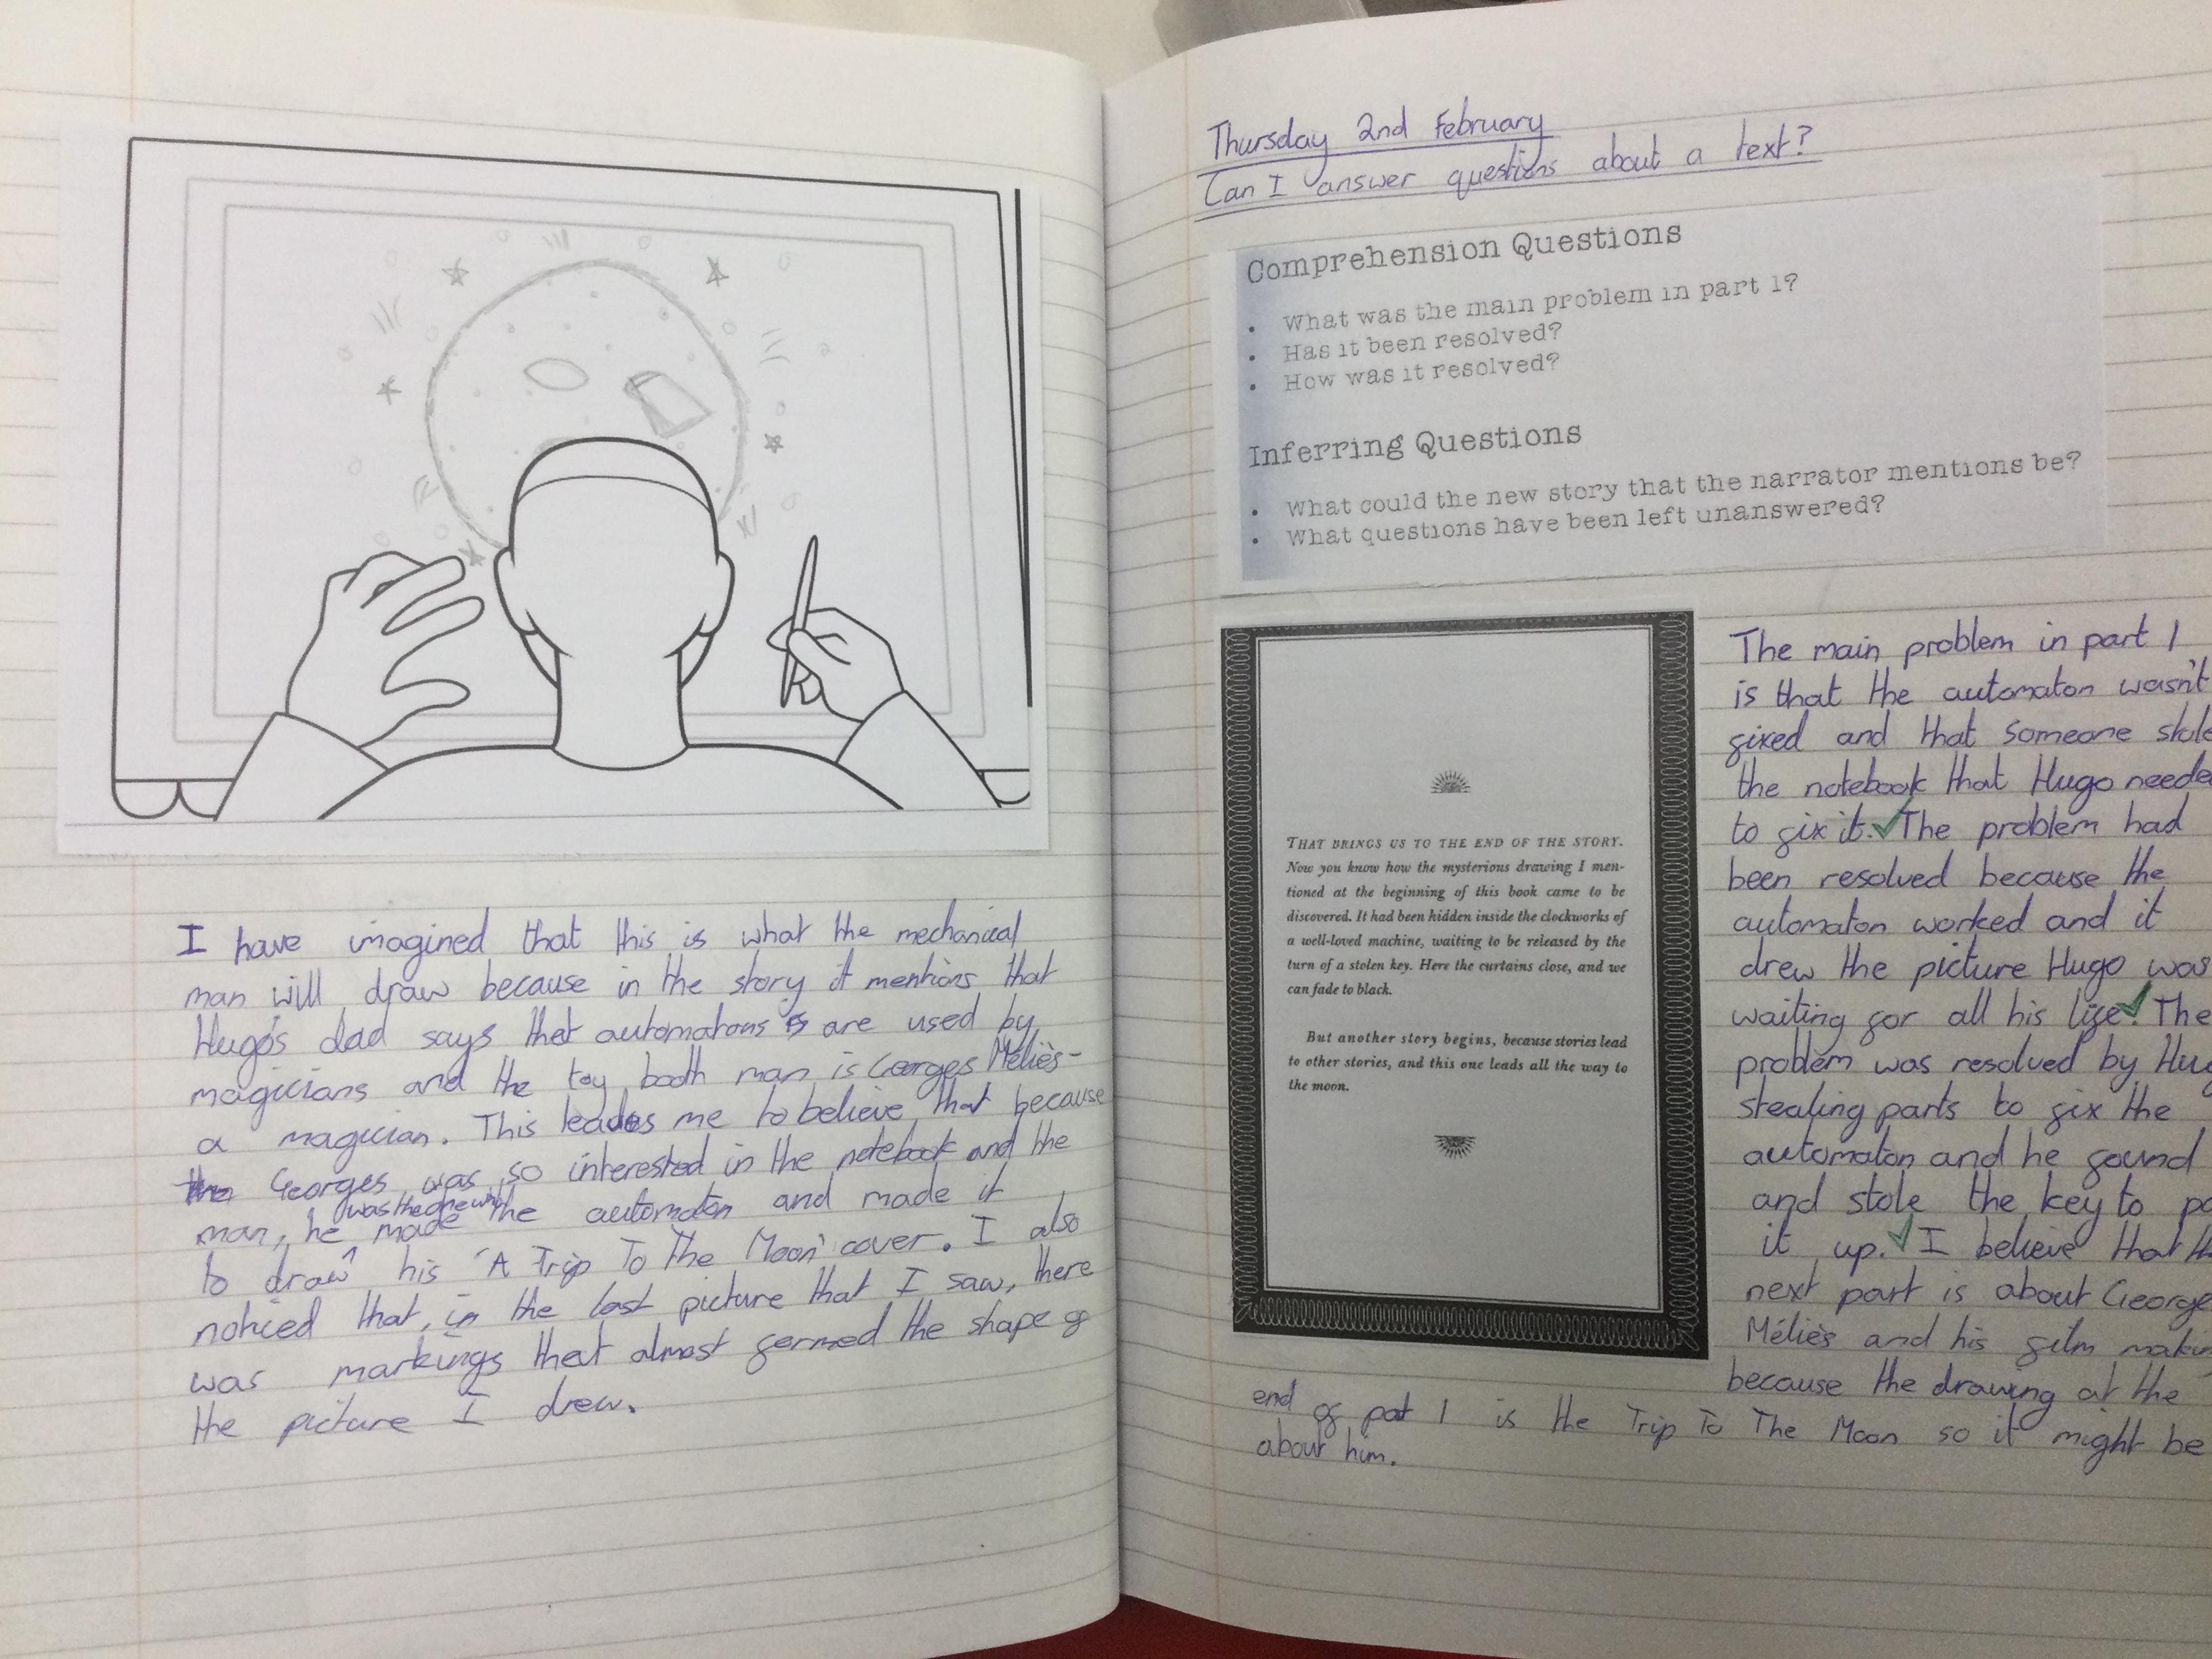 I have imagined that this is what the mechanical
man will draw because in the story it mentions that
Hugo's dad says that automatons are used by
magicians and the toy booth man is Georges Méliès-
a magician. This leades me to believe that because
Georges was so interested in the notebook and the
was the one who
man, he made the automaton and made it
to draw his 'A Trip To The Moon' cover. I also
noticed that, in the last picture that I saw, there
was markings that almost formed the shape of
the picture I drew.
Thursday 2nd February
Can I answer questions about a text?
Comprehension Questions
• What was the main problem in part 1?
• Has it been resolved?
• How was it resolved?
Inferring Questions
• What could the new story that the narrator mentions be?
• What questions have been left unanswered?
THAT BRINGS US TO THE END OF THE STORY.
Now you know how the mysterious drawing I men-
tioned at the beginning of this book came to be
discovered. It had been hidden inside the clockworks of
a well-loved machine, waiting to be released by the
turn of a stolen key. Here the curtains close, and we
can fade to black.
But another story begins, because stories lead
to other stories, and this one leads all the way to
the moon.
The main problem in part 1
is that the automaton wasn't
fixed and that someone stole
the notebook that Hugo neede
to fix it. The problem had
been resolved because the
automaton worked and it
drew the picture Hugo was
waiting for all his life. The
problem was resolved by Hug
stealing parts to fix the
automaton and he found
and stole the key to
it up. I believe that th
next part is about George
Méliès and his film makin
because the drawing at the
end of part 1 is the Trip To The Moon so it might be
about him.